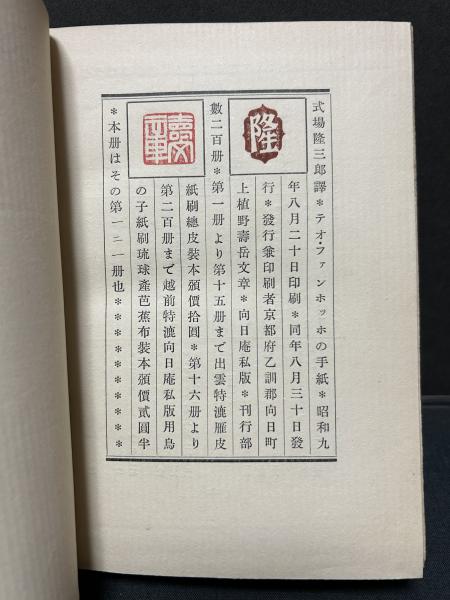 式場隆三郎譯＊テオ・ファンホッホの手紙＊昭和九
年八月二十日印刷＊同年八月三十日發
行＊發行兼印刷者京都府乙訓郡向日町
上植野壽岳文章＊向日庵私版＊刊行部
數二百册＊第一册より第十五册まで出雲特漉雁皮
紙刷總皮裝本頒價拾圓＊第十六册より
第二百册まで越前特漉向日庵私版用鳥
の子紙刷琉球產芭蕉布裝本頒價貳圓半
＊本册はその第一二一册也＊＊＊＊＊＊＊＊＊＊
隆